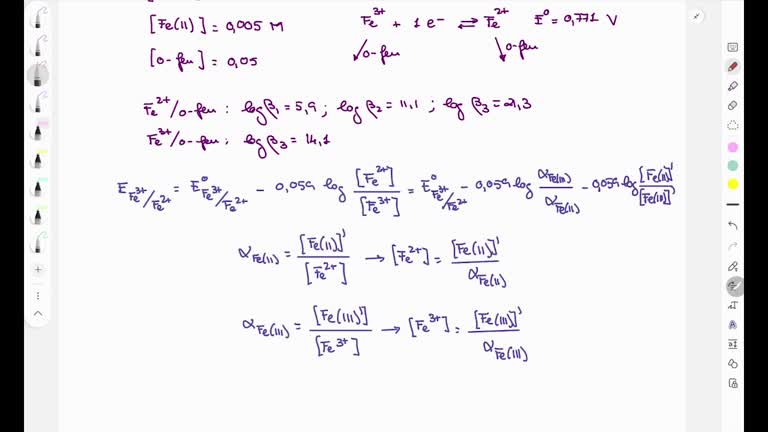 [Fe(II)] = 0,005 M   Fe³⁺ + 1 e⁻ ⇌ Fe²⁺   E⁰ = 0,771 V
[o-fen] = 0,05   ↙ o-fen   ↘ o-fen
Fe²⁺/o-fen : log β₁ = 5,9 ; log β₂ = 11,1 ; log β₃ = 21,3
Fe³⁺/o-fen : log β₃ = 14,1
E Fe³⁺/Fe²⁺ = E⁰ Fe³⁺/Fe²⁺ - 0,059 log [Fe²⁺]/[Fe³⁺] = E⁰ Fe³⁺/Fe²⁺ - 0,059 log α Fe(III)/α Fe(II) - 0,059 log [Fe(II)]'/[Fe(III)]'
α Fe(II) = [Fe(II)]'/[Fe²⁺] → [Fe²⁺] = [Fe(II)]'/α Fe(II)
α Fe(III) = [Fe(III)']/[Fe³⁺] → [Fe³⁺] = [Fe(III)]'/α Fe(III)